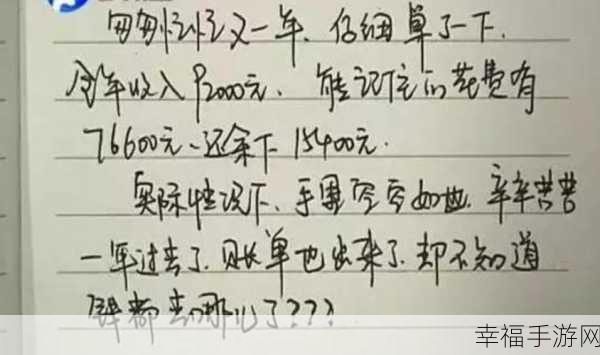 匆匆忙忙又一年、仔细算了一下.
全年收入92000元、能记住的花费有
76600元、还余下15400元.
实际情况下、手里空空如也、辛辛苦苦
一年过去了、账单也出来了、却不知道
钱都去哪儿了???
幸福手游网